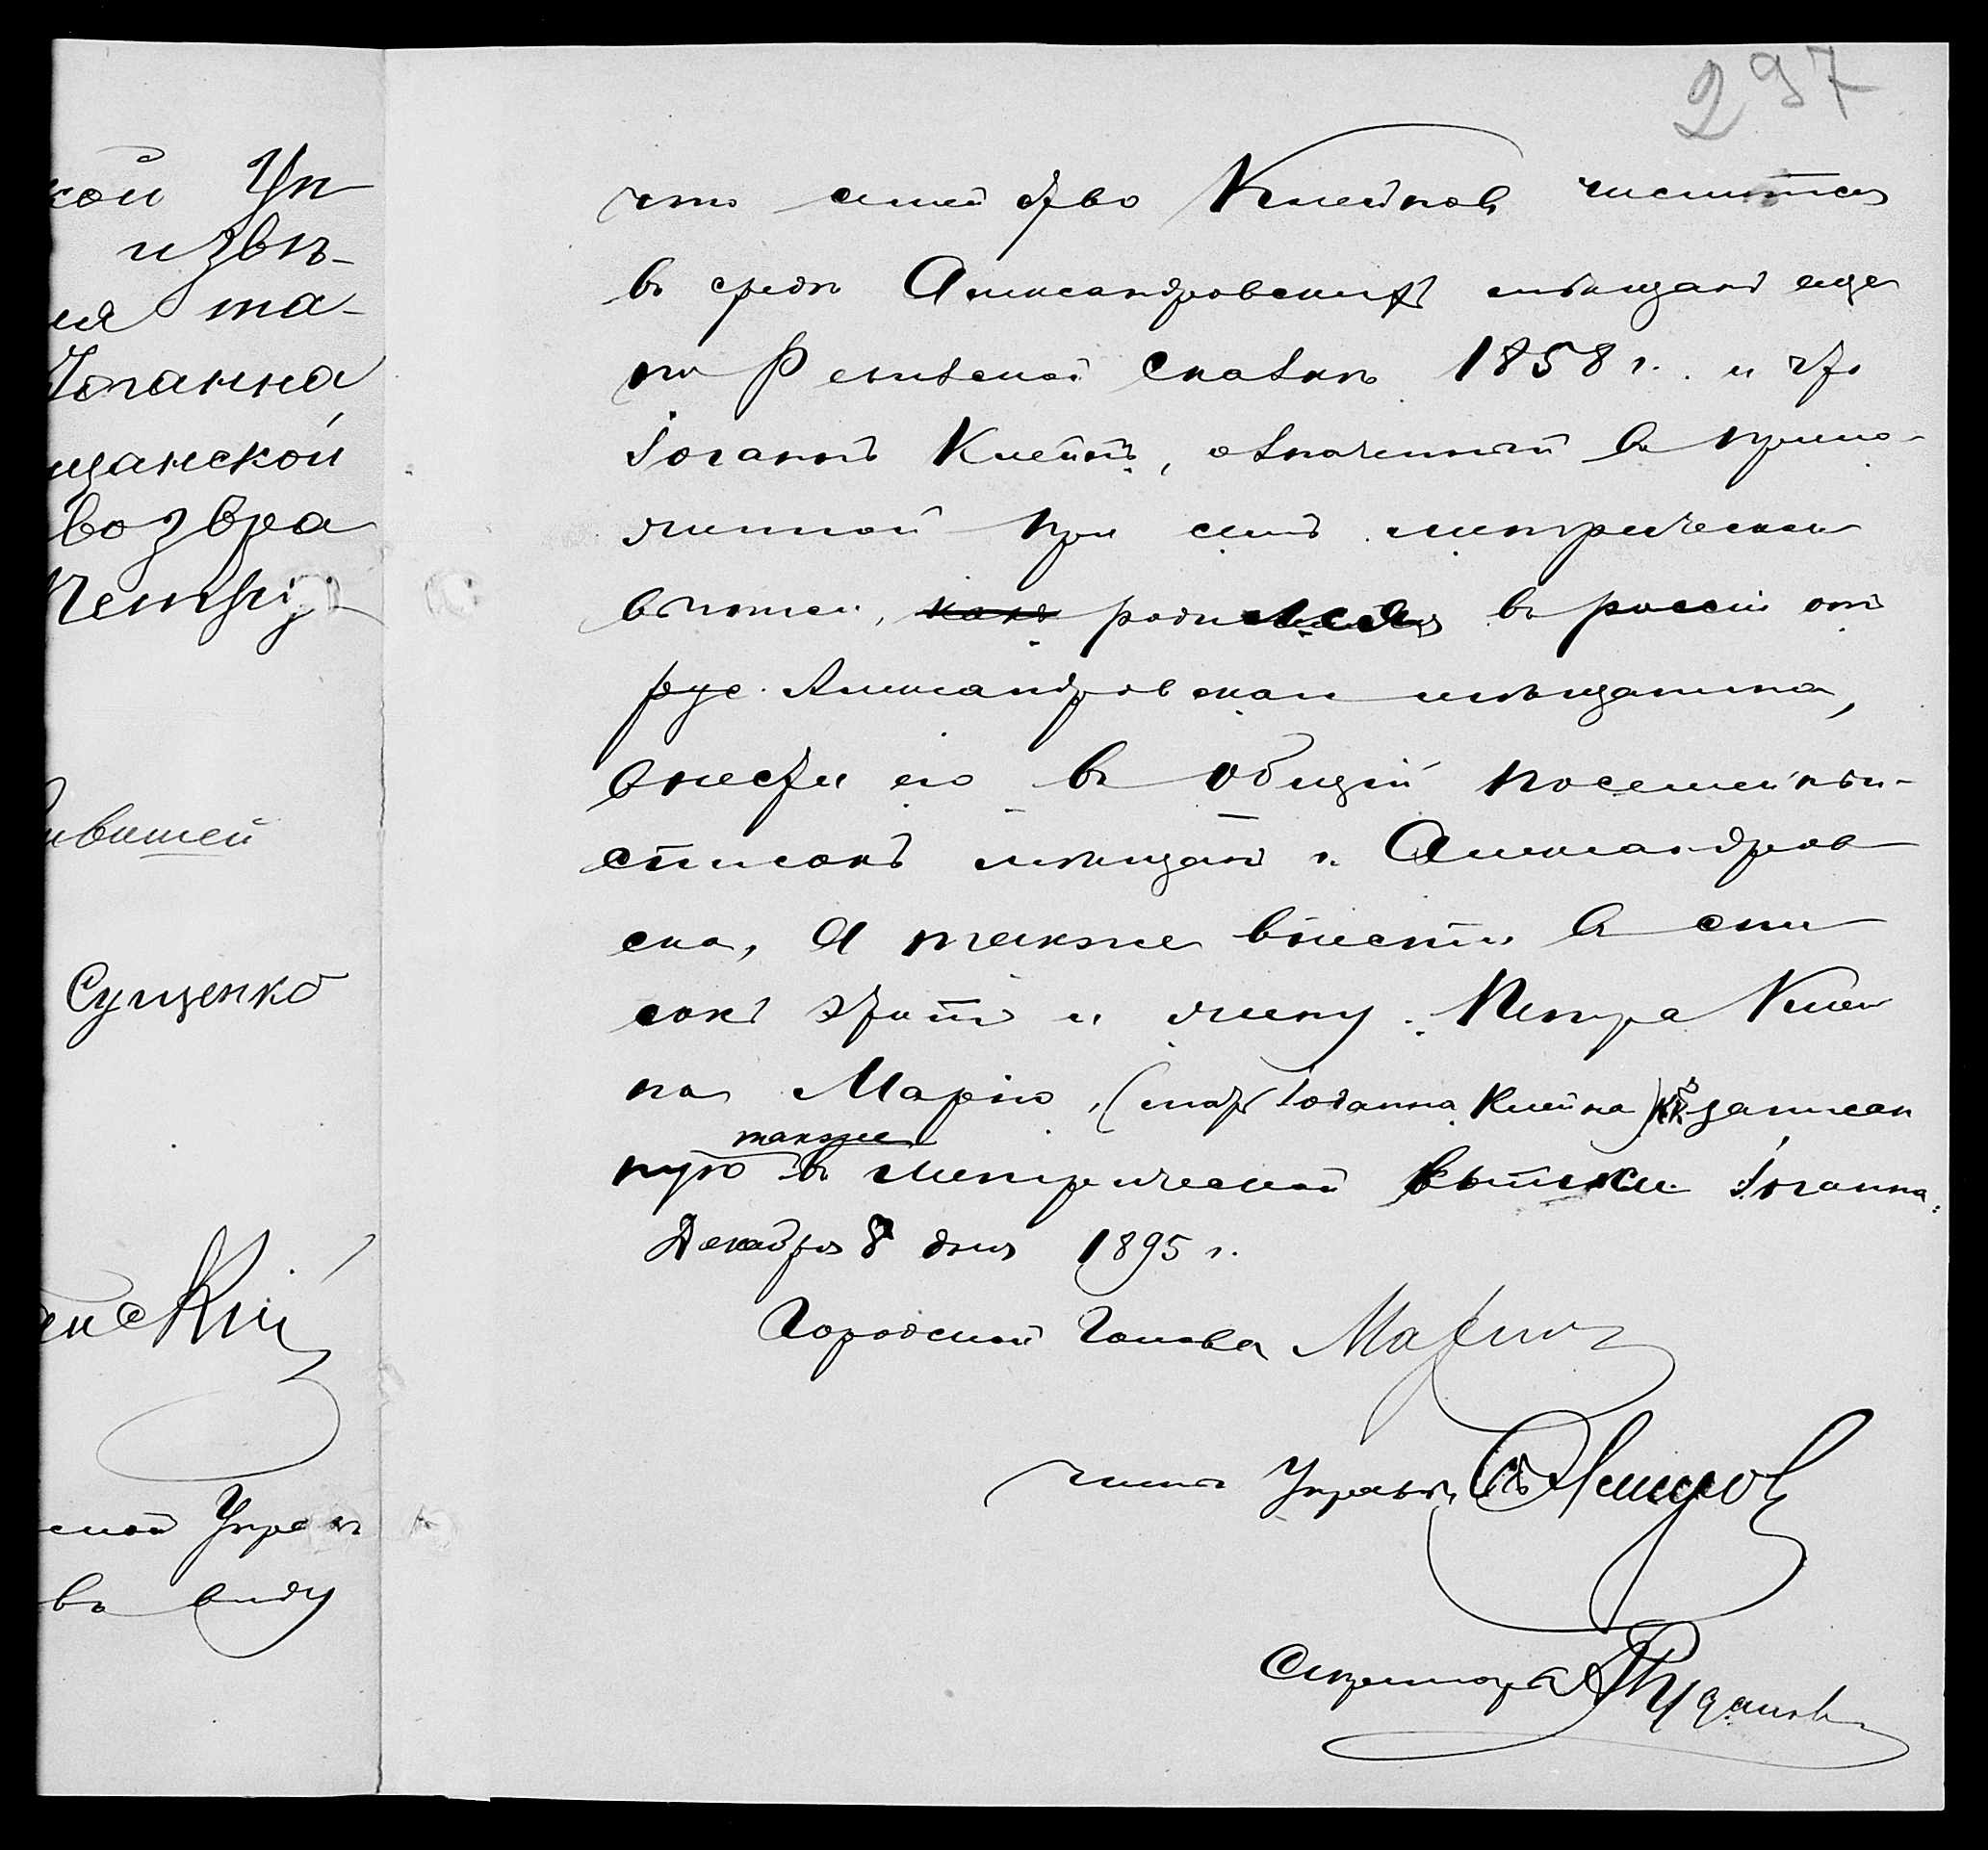 297
кой Уп
извѣ-
ія та-
Іоганна
щанской
возвра
Петру
ившей
Сущенко
енскій
ской Управѣ
въ виду
что семейство Клейновъ числится
въ средѣ Александровскихъ мѣщанъ еще
по Ревизской Сказкѣ 1858 г. и что
Іоганнъ Клейнъ, означенный въ прило-
женной при семъ метрической
выписи, какъ родился въ россіи отъ
рус. Александровскаго мѣщанина,
внести его въ общій посемейный
списокъ мѣщанъ г. Александров
ска, а также внести въ спи
сокъ этотъ и жену Петра Клей
на Марію, (мать Іоганна Клейна) какъ записан
также
ную въ метрической выписи Іоганна.
Декабря 8 дня 1895 г.
Городской Голова
Членъ Управы
Секретарь